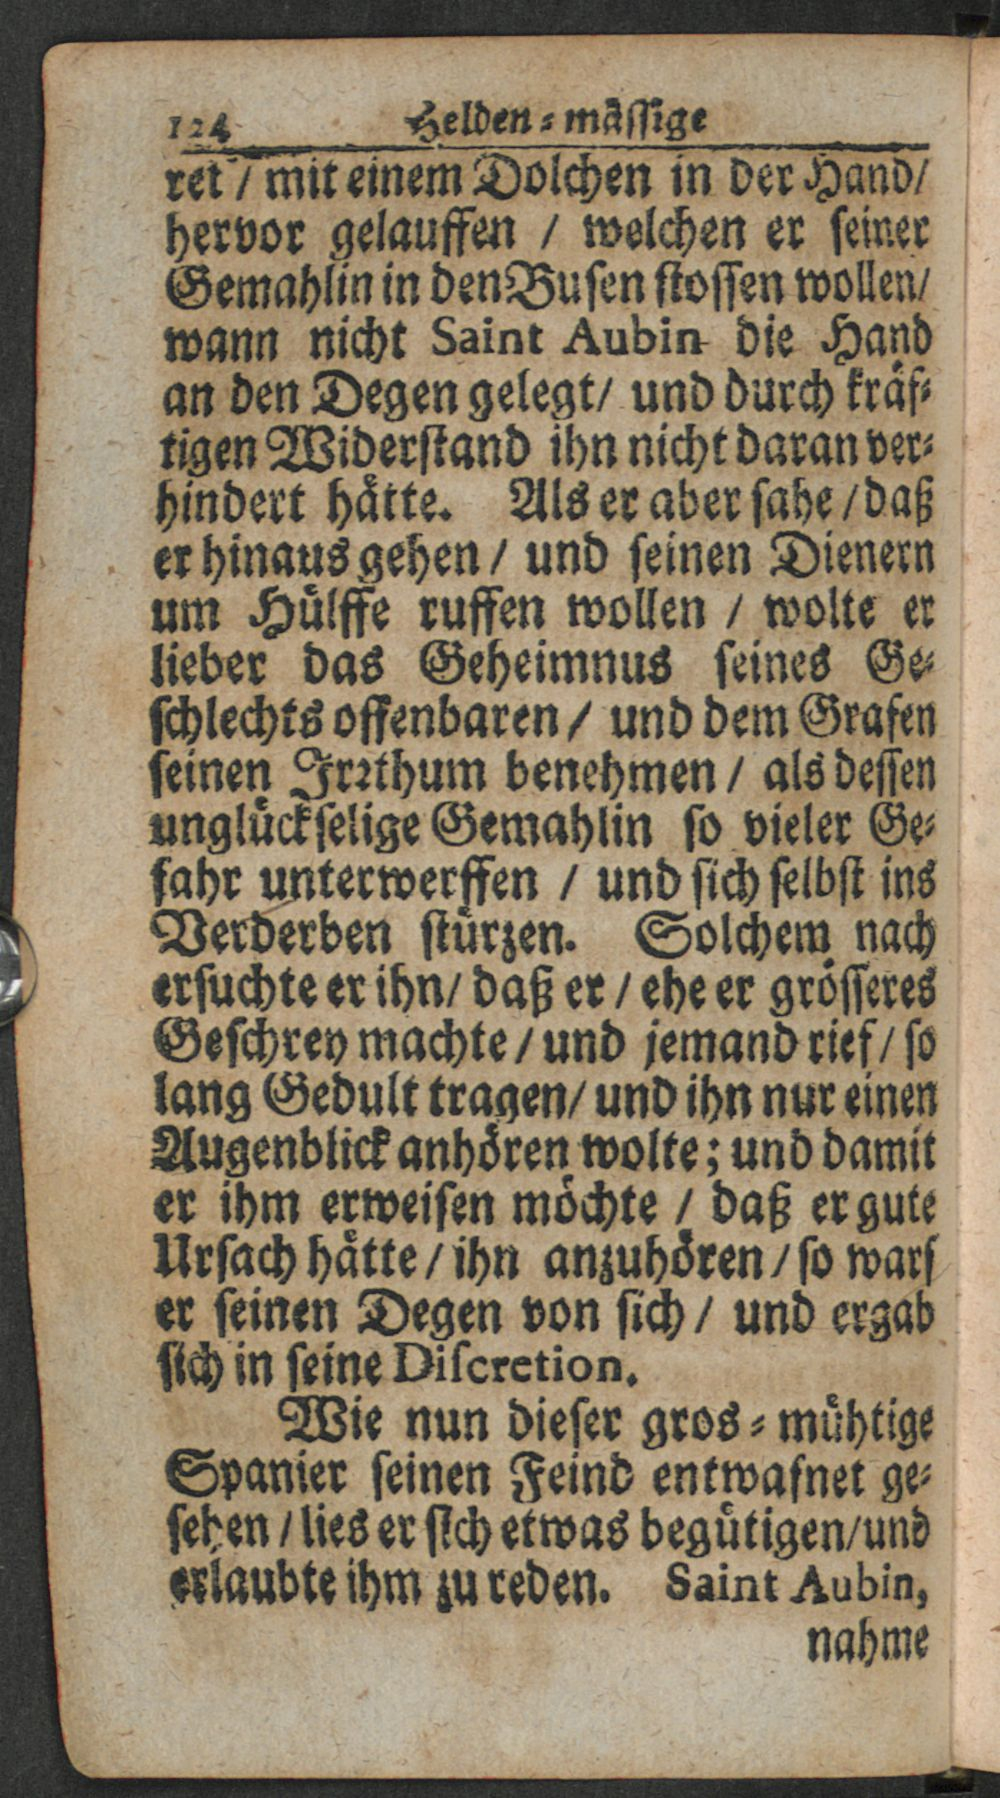 124 Helden-mässige
ret / mit einem Dolchen in der Hand/
hervor gelauffen / welchen er seiner
Gemahlin in den Busen stossen wollen/
wann nicht Saint Aubin die Hand
an den Degen gelegt/ und durch kräf-
tigen Widerstand ihn nicht daran ver-
hindert hätte. Als er aber sahe / daß
er hinaus gehen / und seinen Dienern
um Hülffe ruffen wollen / wolte er
lieber das Geheimnus seines Ge-
schlechts offenbaren / und dem Grafen
seinen Irꝛthum benehmen / als dessen
unglückselige Gemahlin so vieler Ge-
fahr unterwerffen / und sich selbst ins
Verderben stürzen. Solchem nach
ersuchte er ihn/ daß er / ehe er grösseres
Geschrey machte / und jemand rief / so
lang Gedult tragen/ und ihn nur einen
Augenblick anhören wolte; und damit
er ihm erweisen möchte / daß er gute
Ursach hätte / ihn anzuhören / so warf
er seinen Degen von sich / und ergab
sich in seine Discretion.
Wie nun dieser gros-mühtige
Spanier seinen Feind entwafnet ge-
sehen / lies er sich etwas begütigen/und
erlaubte ihm zu reden. Saint Aubin,
nahme